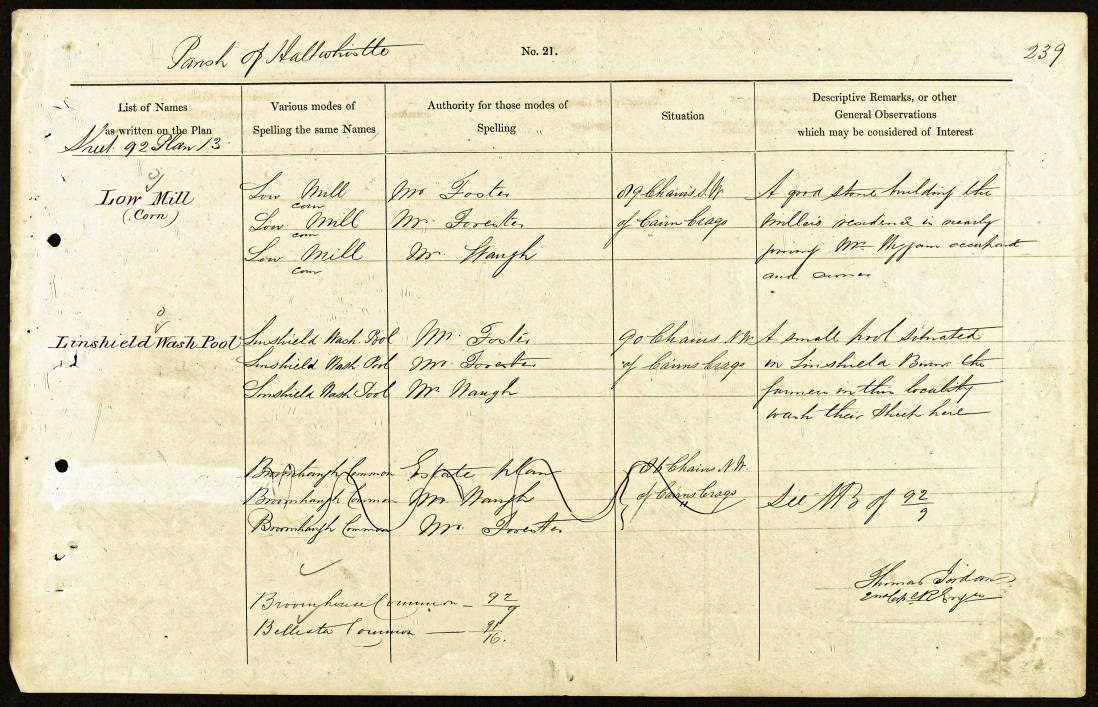 Parish of Haltwhistle
No. 21.
239
List of Names
as written on the Plan
Various modes of
Spelling the same Names
Authority for those modes of
Spelling
Situation
Descriptive Remarks, or other
General Observations
which may be considered of Interest
Sheet 92 Plan 13
Low Mill
(Corn)
Low Mill
corn
Low Mill
corn
Low Mill
corn
Mr. Foster
Mr. Forester
Mr. Waugh
89 Chains S.W.
of Cairn Crags
A good stone building the
Millers residence is nearly
joining Mr. occupant
and owner
Linshield Wash Pool
Linshield Wash Pool
Linshield Wash Pool
Linshield Wash Pool
Mr. Foster
Mr. Forester
Mr Waugh
90 Chains N.W.
of Cairns Crags
A small pool situated
in Linshield Burn the
farmers in this locality
wash their Sheep here
Broomhaugh Common
Broomhaugh Common
Broomhaugh Common
Estate plan
Mr. Waugh
Mr. Forester
Chains N.W.
of Cairns Crags
See NB of 92/9
Thomas Jordan
2nd Corpl R Engrs
Broomhouse Common - 92/9
Bellister Common - 91/16.